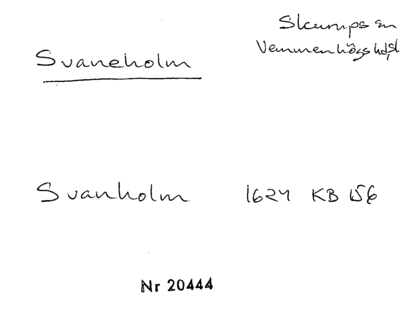 Skurups sn
Vemmenhögs hd, sk
Svaneholm
Svanholm 1624 KB 156
Nr 20444